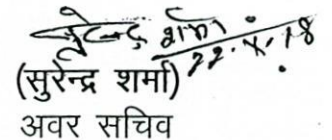 सुरेन्द्र शर्मा
22.x.18
(सुरेन्द्र शर्मा)
अवर सचिव